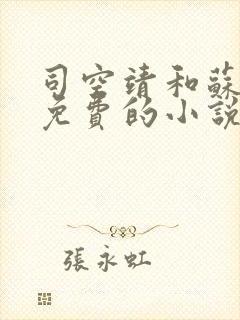 司空靖和蘇
免費的小說
張永虹